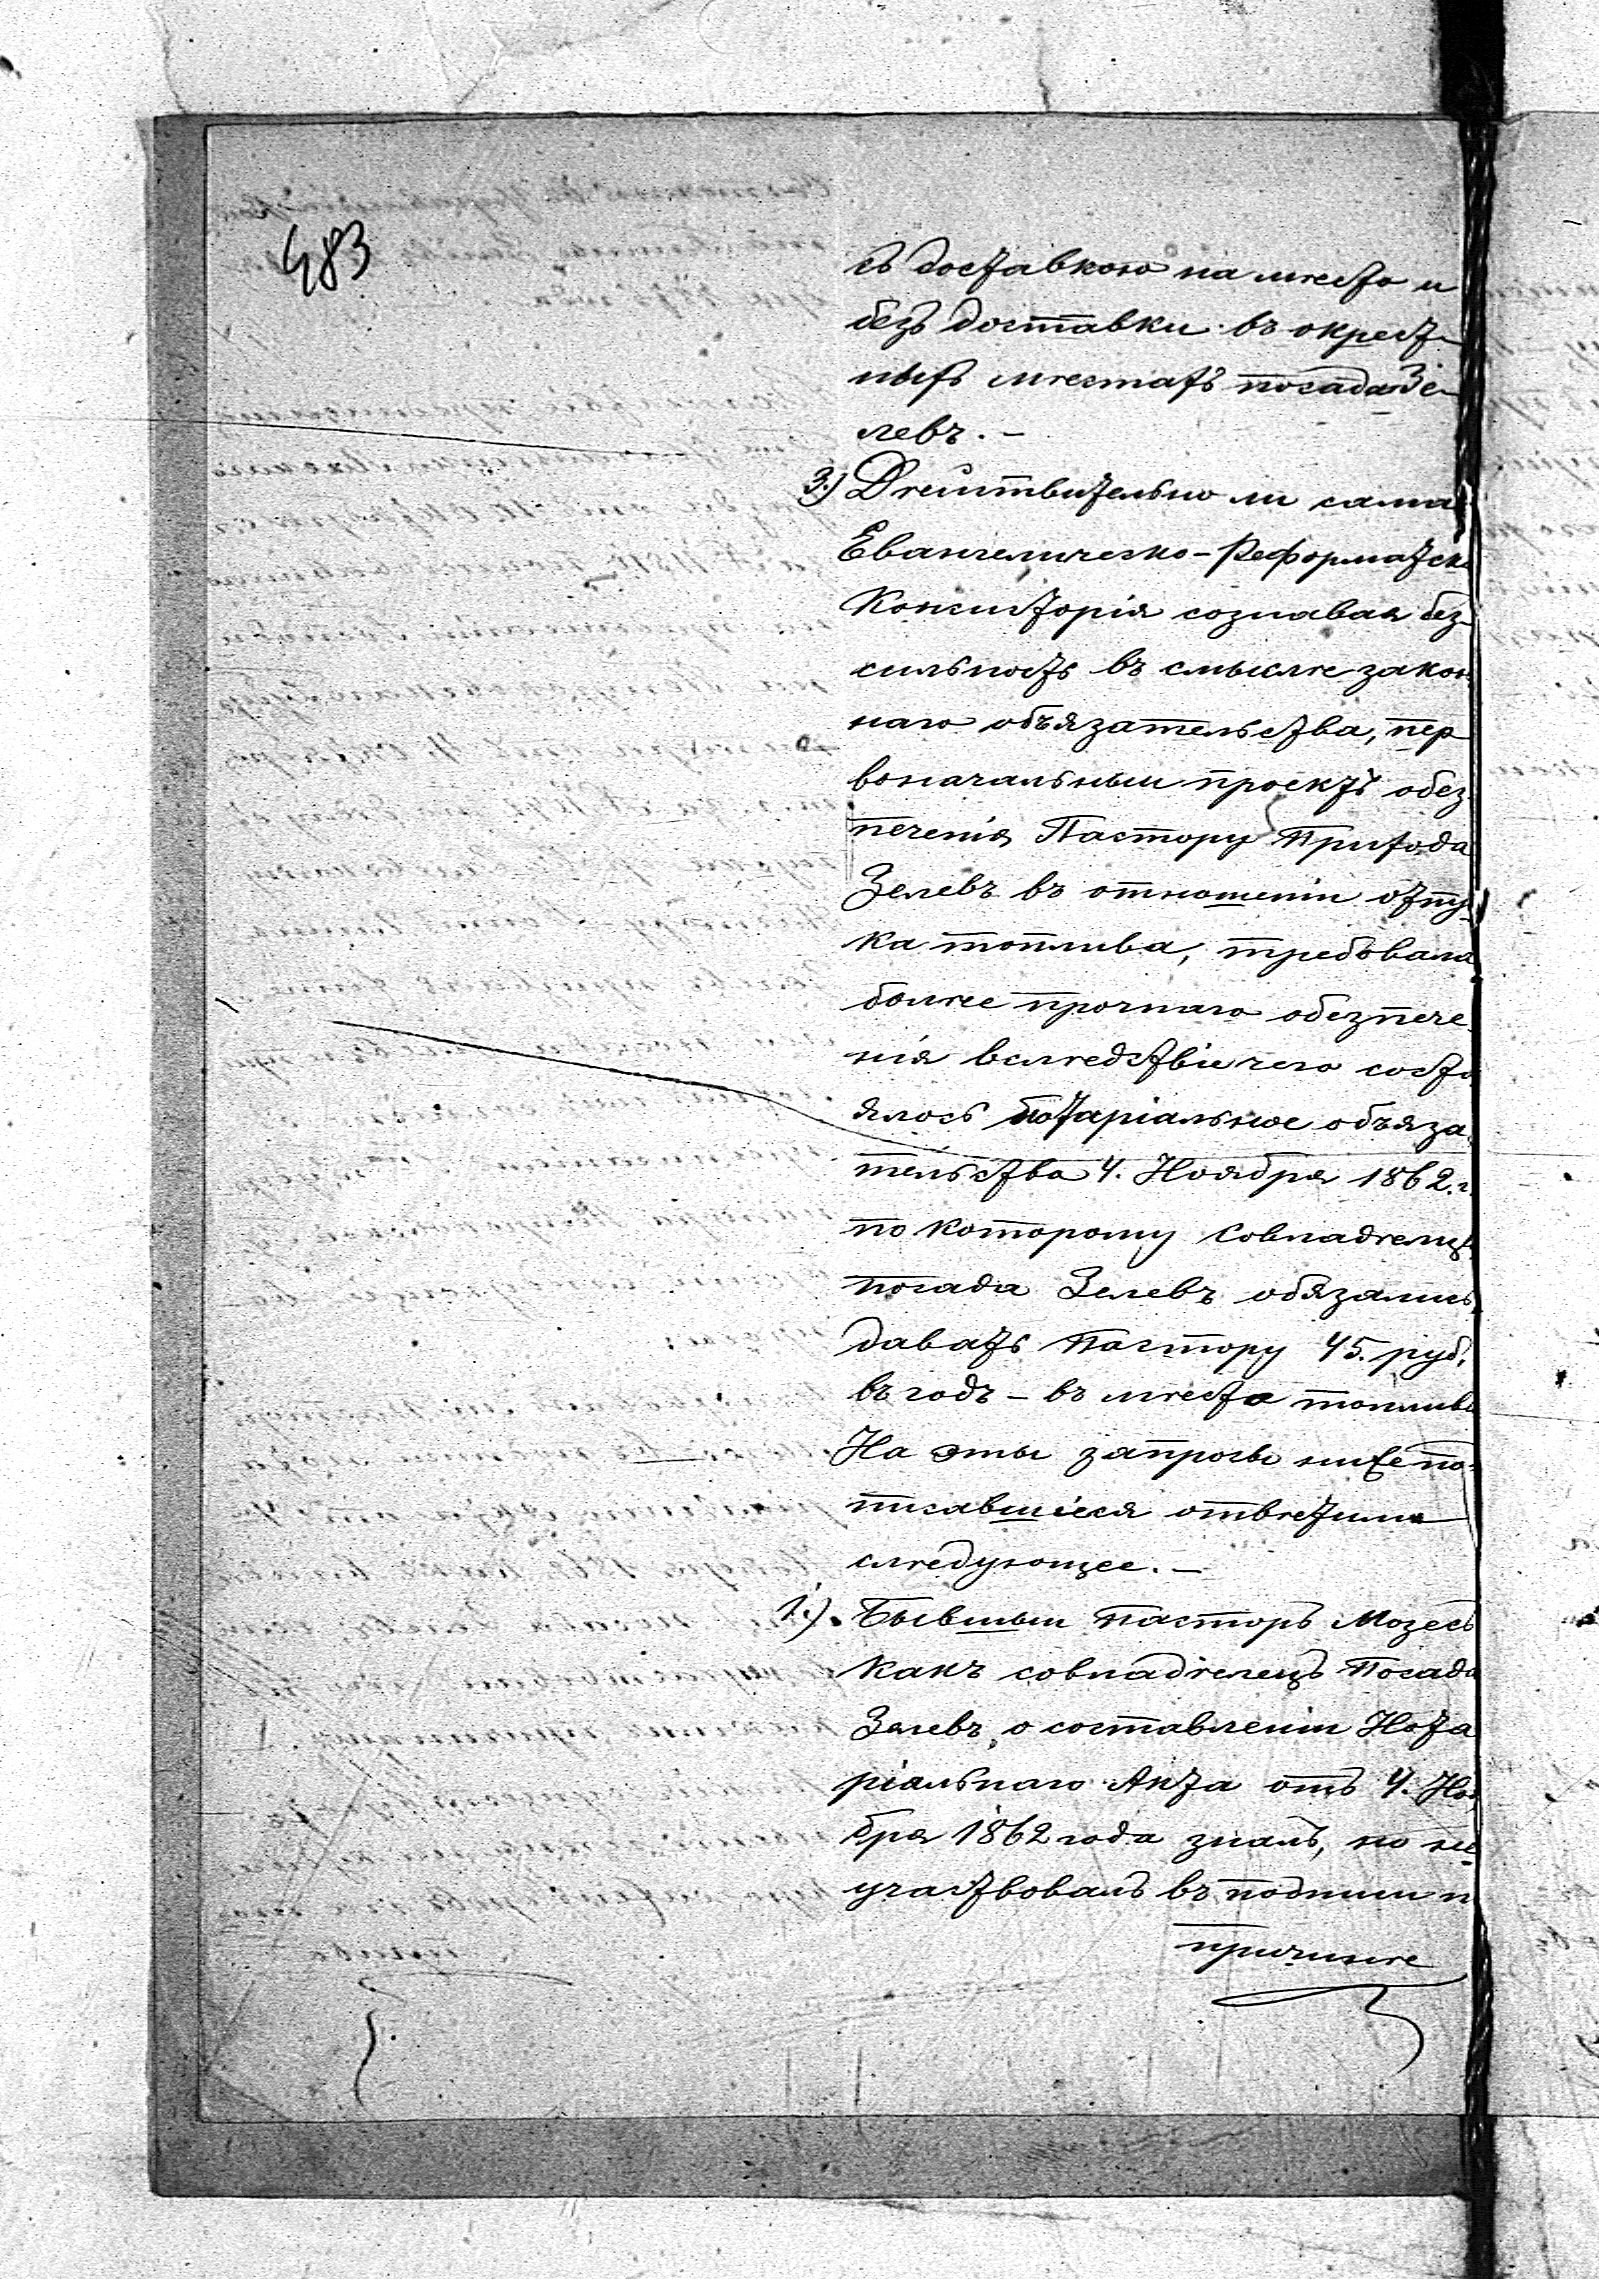 483
съ доставкою на мѣсто и
безъ доставки въ окрест-
ныхъ мѣстахъ посада Зе-
левъ. -
3.) Дѣйствительно ли сама
Евангелическо-Реформатск
Консисторія сознавая без-
сильность въ смыслѣ закон-
наго объязательства, пер
воначальный проектъ обез-
печенія Пастору Прихода
Зелевъ въ отношеніи отпу-
ка топлива, требовала
болѣе прочнаго обезпече-
нія вслѣдствіе чего состо
ялось нотаріальное объяза-
тельства 4. Ноября 1862. г.
по которому Совладѣльц
посада Зелевъ обязались
давать Пастору 45. руб.
въ годъ - въ мѣсто топлива
На эты запросы ниже по-
писавшіеся отвѣтили
слѣдующее. -
1.) Бывшый пасторъ Мозесъ
какъ совладѣлецъ Посада
Зелевъ, о составленіи Нота
ріальнаго Акта отъ 4. Ноя
бря 1862 года зналъ, но не
участвовалъ въ подписи п
причинѣ